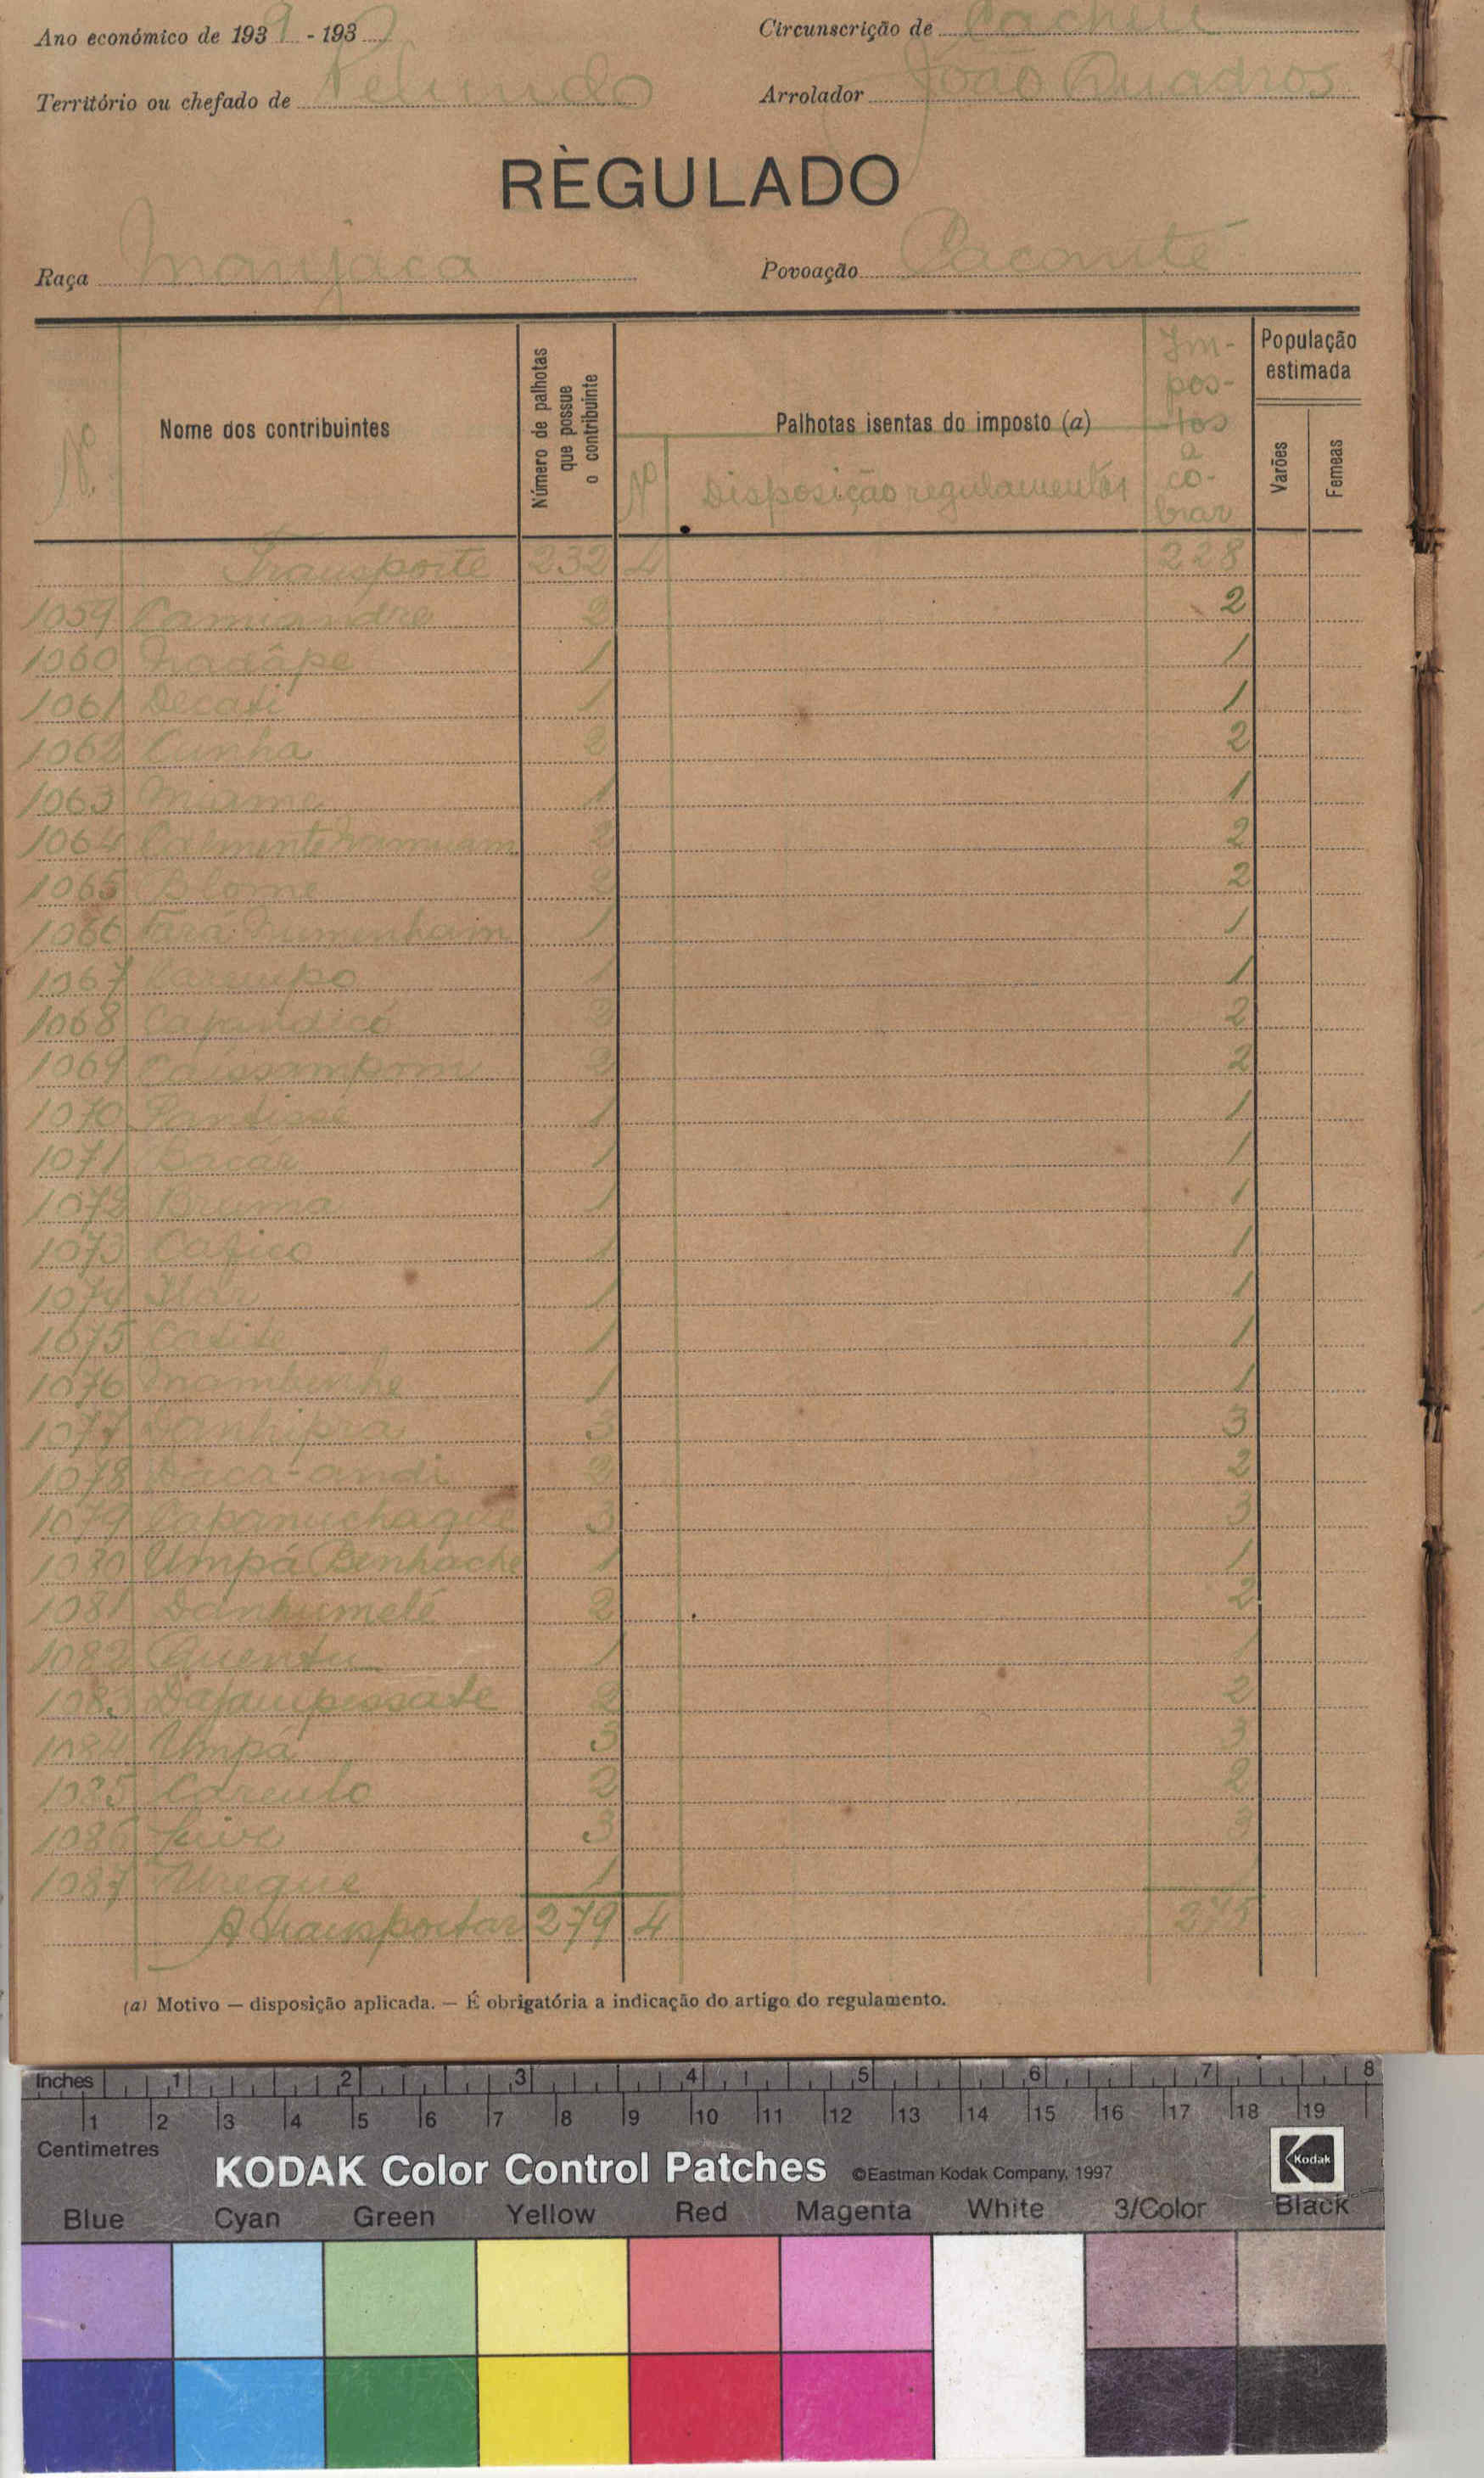 Ano económico de 1939 - 193
Circunscrição de Cacheu
Território ou chefado de Pelundo
Arrolador João Quadros
RÈGULADO
Raça Manjaca
Povoação Cacomté
N.
Nome dos contribuintes
Número de palhotas que possue o contribuinte
Palhotas isentas do imposto (a)
Nº Disposição regulamentar
Impostos a cobrar
População estimada
Varões
Femeas
Transporte 232 4 228
1059 Camiandre 2 2
1060 1 1
1061 Decati 1 1
1062 Cunha 2 2
1063 1 1
1064 2 2
1065 Blome 2 2
1066 Fará 1 1
1067 Carempo 1 1
1068 2 2
1069 Caissampom 2 2
1070 1 1
1071 Bacar 1 1
1072 Bruma 1 1
1073 Cafico 1 1
1074 1 1
1075 Catite 1 1
1076 1 1
1077 Danhipra 3 3
1078 Daca-andi 2 2
1079 Capanuchaque 3 3
1080 Umpá Benhache 1 1
1081 Danhumelé 2 2
1082 Quentu 1 1
1083 Dajampessate 2 2
1084 Umpá 3 3
1085 Carenlo 2 2
1086 3 3
1087 1
A transportar 279 4 275
(a) Motivo — disposição aplicada. — É obrigatória a indicação do artigo do regulamento.
Inches 1 2 3 4 5 6 7 8
1 2 3 4 5 6 7 8 9 10 11 12 13 14 15 16 17 18 19
Centimetres
KODAK Color Control Patches ©Eastman Kodak Company, 1997
Kodak
Blue Cyan Green Yellow Red Magenta White 3/Color Black